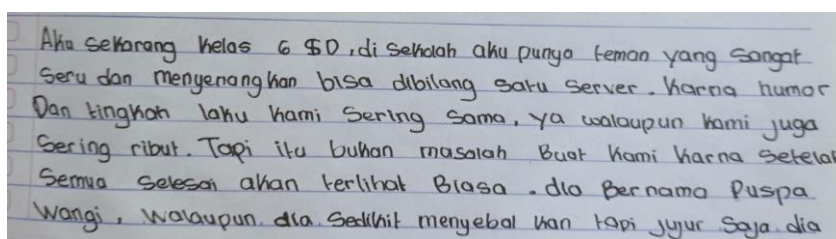 Aku sekarang kelas 6 SD, di sekolah aku punya teman yang sangat
Seru dan menyenangkan bisa dibilang satu server. Karna humor
Dan tingkah laku kami sering sama, ya walaupun kami juga
Sering ribut. Tapi itu bukan masalah Buat kami karna setelah
Semua selesai akan terlihat Biasa. dia Bernama Puspa
Wangi, walaupun dia sedikit menyebal kan tapi jujur saja dia